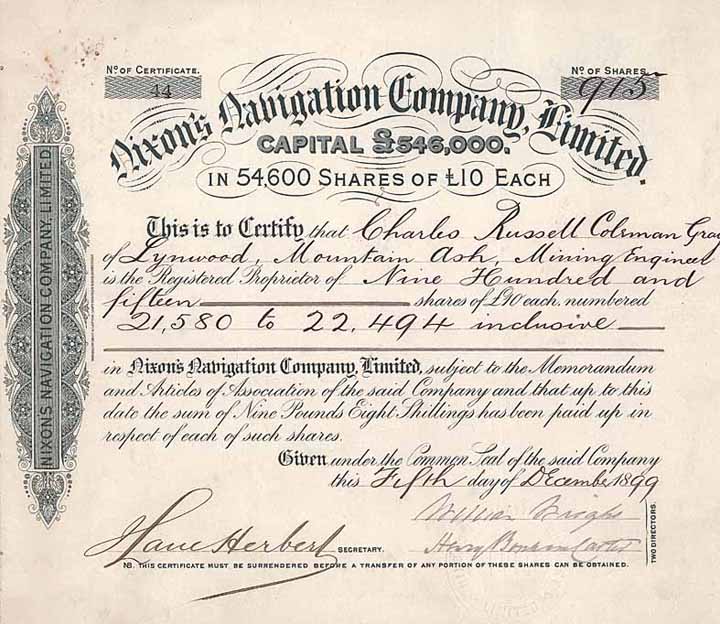 No. OF CERTIFICATE.
44
No. OF SHARES
915
Nixon's Navigation Company, Limited.
CAPITAL £546,000.
IN 54,600 SHARES OF £10 EACH
NIXON'S NAVIGATION COMPANY, LIMITED
This is to Certify that Charles Russell Coleman
of Lynwood, Mountain Ash, Mining Engineer
is the Registered Proprietor of Nine Hundred and
fifteen shares of £10 each, numbered
21,580 to 22,494 inclusive
in Nixon's Navigation Company, Limited, subject to the Memorandum
and Articles of Association of the said Company and that up to this
date the sum of Nine Pounds Eight Shillings has been paid up in
respect of each of such shares.
Given under the Common Seal of the said Company
this Fifth day of December 1899
William
Herbert SECRETARY.
Henry
TWO DIRECTORS.
NB. THIS CERTIFICATE MUST BE SURRENDERED BEFORE A TRANSFER OF ANY PORTION OF THESE SHARES CAN BE OBTAINED.